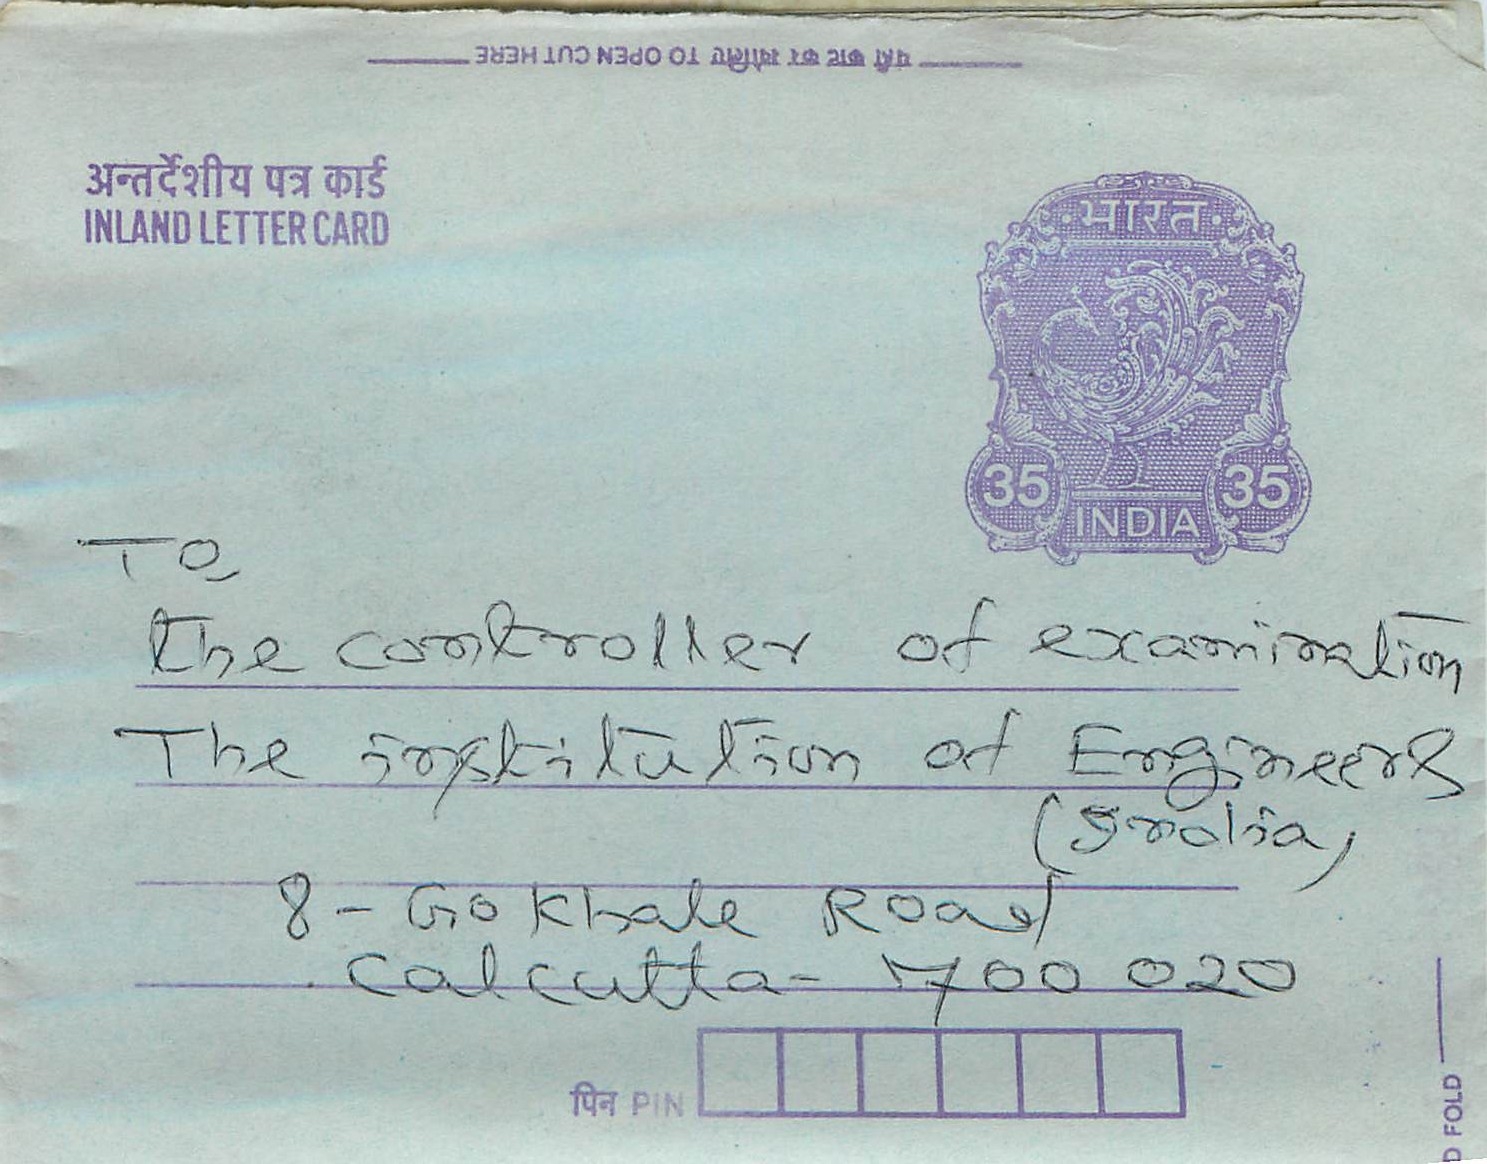 पत्री काट कर खोलिए TO OPEN CUT HERE
अन्तर्देशीय पत्र कार्ड
INLAND LETTER CARD
भारत
35 35
INDIA
To
the controller of examination
The institution of Engineers
(India)
8 - Gokhale Road
Calcutta - 700 020
पिन PIN
D FOLD